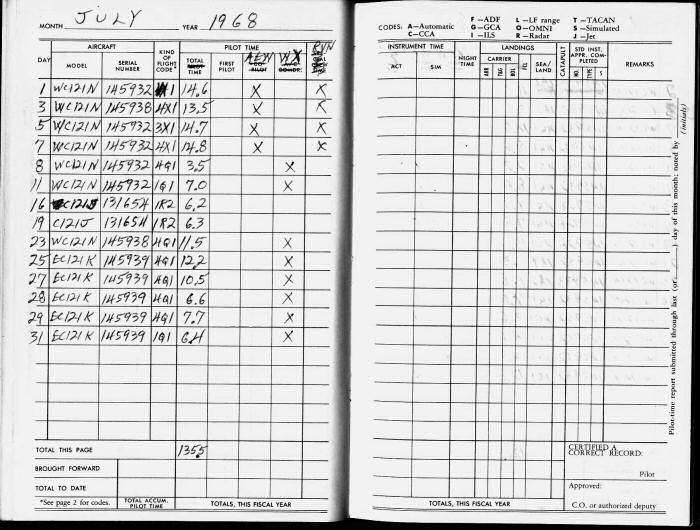 MONTH JULY YEAR 1968
AIRCRAFT PILOT TIME
DAY MODEL SERIAL NUMBER KIND OF FLIGHT CODE* TOTAL TIME FIRST PILOT AEW WX RVN
1 WC121N 145932 X1 14.6 X X
3 WC121N 145938 4X1 13.5 X X
5 WC121N 145932 3X1 14.7 X X
7 WC121N 145932 4X1 14.8 X X
8 WC121N 145932 4Q1 3.5 X
11 WC121N 145932 1Q1 7.0 X
16 C121J 131654 1R2 6.2
19 C121J 131654 1R2 6.3
23 WC121N 145938 4Q1 11.5 X
25 EC121K 145939 4Q1 12.2 X
27 EC121K 145939 4Q1 10.5 X
28 EC121K 145939 4Q1 6.6 X
29 EC121K 145939 4Q1 7.7 X
31 EC121K 145939 1Q1 6.4 X
TOTAL THIS PAGE 135.5
BROUGHT FORWARD
TOTAL TO DATE
*See page 2 for codes. TOTAL ACCUM. PILOT TIME TOTALS, THIS FISCAL YEAR
CODES: A—Automatic F—ADF L—LF range T—TACAN
G—GCA O—OMNI S—Simulated
C—CCA I—ILS R—Radar J—Jet
INSTRUMENT TIME NIGHT TIME LANDINGS CATAPULT STD INST. APPR. COMPLETED REMARKS
ACT SIM CARRIER SEA/LAND NO. TYPE S
ARR T&G BOL FCL
Pilot-time report submitted through last (or ) day of this month; noted by (initials)
CERTIFIED A CORRECT RECORD:
Pilot
Approved:
TOTALS, THIS FISCAL YEAR C.O. or authorized deputy